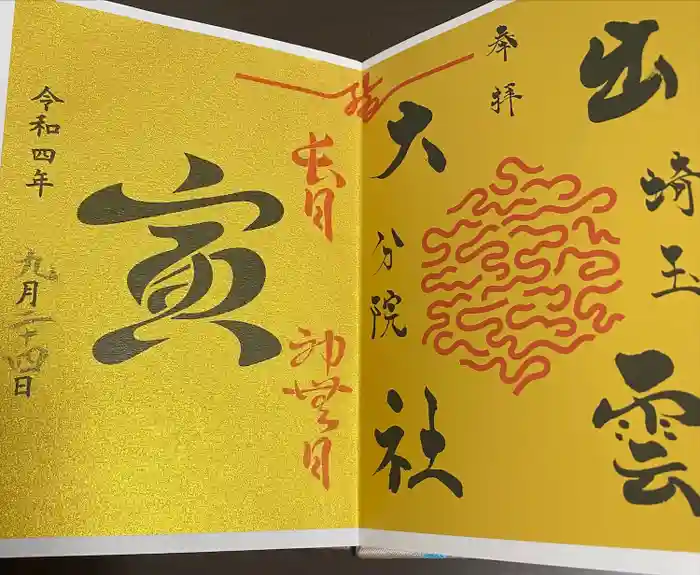 奉拝
出雲
埼玉
大社
分院
結
長月
神無月
寅
令和四年
九月二十四日